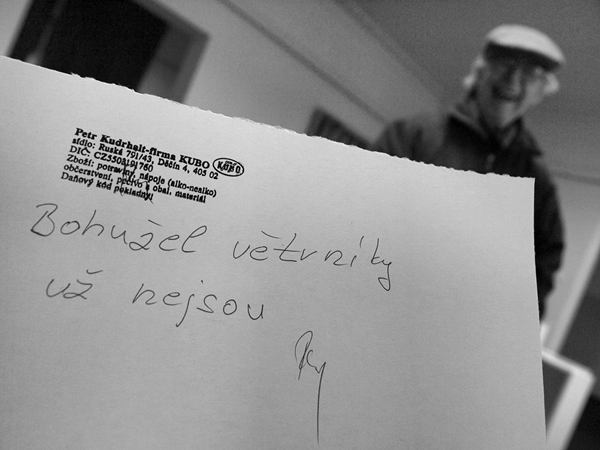 Petr Kudrhalt-firma KUBO KUBO
sídlo: Ruská 791/43, Děčín 4, 405 02
DIČ: CZ5503191760
Zboží: potraviny, nápoje (alko-nealko)
občerstvení, pečivo a obal. materiál
Daňový kód pokladny!
Bohužel větrníky
už nejsou